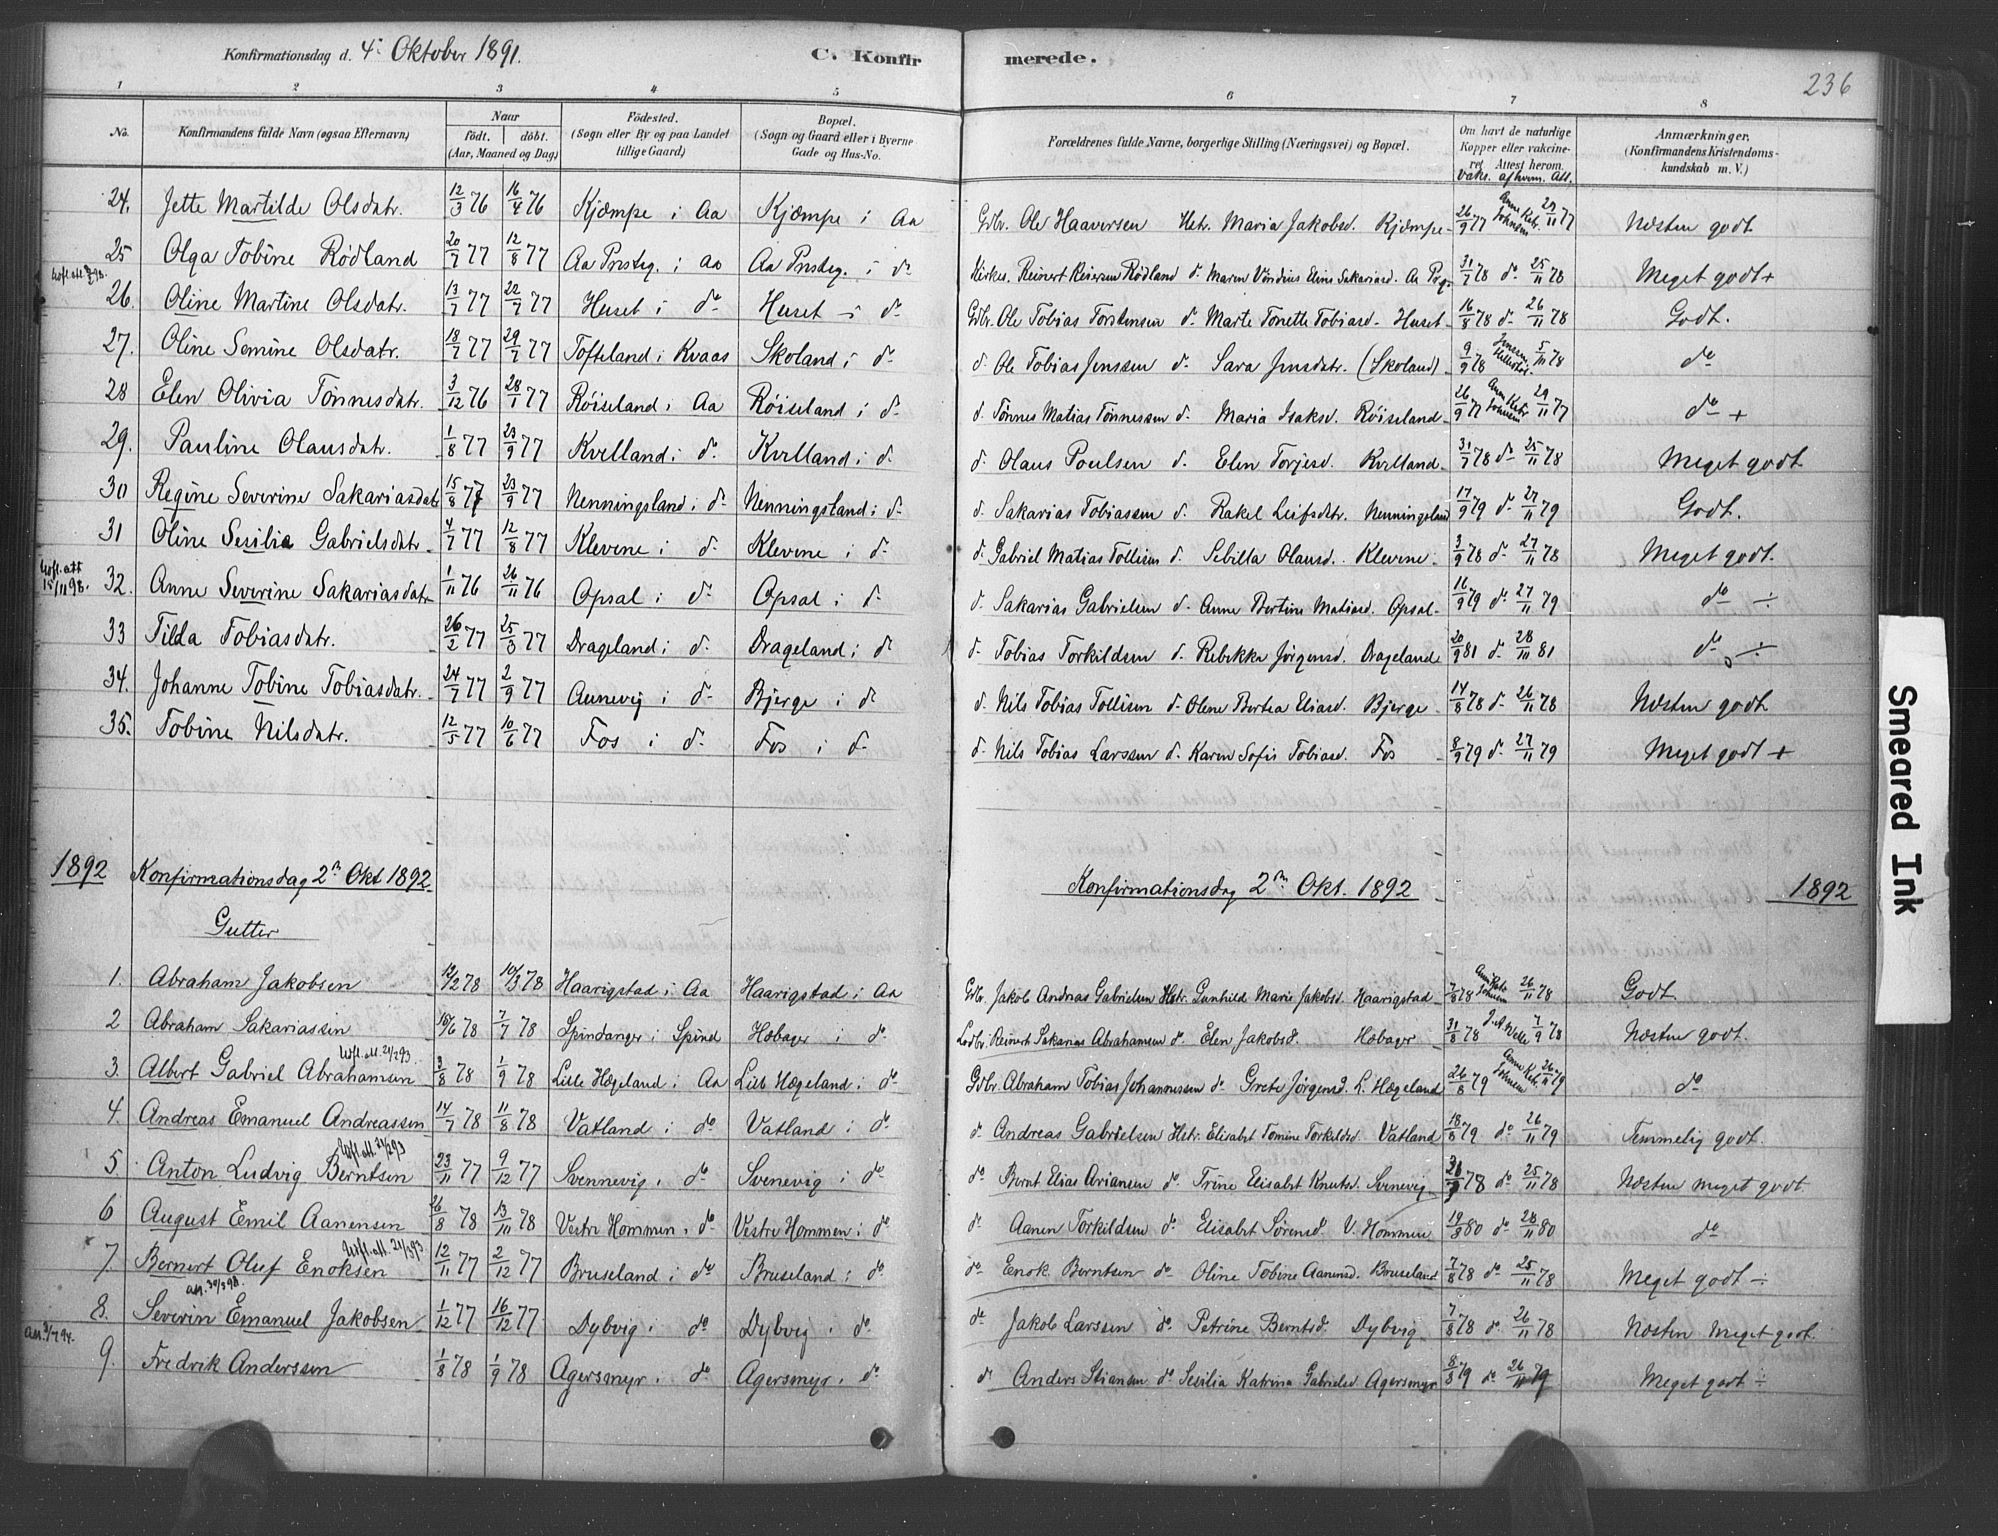 Konfirmationsdag d. 4. Oktober 1891. C. Konfirmerede. 236
1 2 3 4 5 6 7 8
No. Konfirmandens fulde Navn (ogsaa Efternavn) Naar født. døbt. (Aar, Maaned og Dag) Fødested. (Sogn eller By og paa Landet tillige Gaard) Bopæl. (Sogn og Gaard eller i Byerne Gade og Hus-No. Forældrenes fulde Navne, borgerlige Stilling (Næringsvei) og Bopæl. Om havt de naturlige Kopper eller vakcineret Attest herom. vaks. af hvem. Att. Anmærkninger, (Konfirmandens Kristendomskundskab m. V.)
24. Jette Martilde Olsdatr. 12/3 76 16/4 76 Kjæmpe i Aa Kjæmpe i Aa Gdbr. Ole Haaversen Hstr. Maria Jakobsd. Kjæmpe 26/9 77 Anne Katr. Johnsen 29/11 77 Næsten godt
25 Olga Tobine Rødland 20/7 77 12/8 77 Aa Prsteg. i Aa Aa Prstg. i do Kirkes. Reinert Reiersen Rødland do Maren Elene Sakariasd. Aa Prg. 31/7 78 do 25/11 78 Meget godt +
26. Oline Martine Olsdatr. 13/7 77 22/7 77 Huset i do Huset i do Gdbr. Ole Tobias Torstensen do Marte Tonette Tobiasd. Huset 16/8 78 do 26/11 78 Godt.
27. Oline Semine Olsdatr. 18/7 77 29/7 77 Tofteland i Kvaas Skoland i do d. Ole Tobias Jenssen do Sara Jensdatr. (Skoland) 9/9 78 5/11 78 do
28 Elen Olivia Tønnesdatr. 3/12 76 28/1 77 Røiseland i Aa Røiseland i do d. Tønnes Matias Tønnessen d. Maria Isaksd. Røiseland 26/9 77 Anne Katr. Johnsen 29/11 77 do +
29. Pauline Olausdatr. 1/8 77 23/9 77 Kvilland i do Kvilland i do d. Olaus Poulsen d. Elen Torjesd. Kvilland 31/7 78 do 25/11 78 Meget godt
30 Regine Severine Sakariasdatr 15/8 77 23/9 77 Nenningsland i do Nenningsland i do d. Sakarias Tobiassen d. Rakel Leifsdtr. Nenningsland 17/9 79 d. 27/11 79 Godt.
31 Oline Sesilie Gabrielsdatr. 4/7 77 12/8 77 Klevene i do Klevene i do d. Gabriel Matias Tollisen d. Sibilla Olausd. Klevene 3/9 78 do 27/11 78 Meget godt.
Udfl. att 15/11 98. 32. Anne Severine Sakariasdatr 1/11 76 26/11 76 Opsal i do Opsal i do d. Sakarias Gabrielsen d. Anne Bertine Matiasd. Opsal 16/9 79 do 27/11 79 do ÷
33 Tilda Tobiasdatr. 26/2 77 25/3 77 Drageland i do Drageland i do d. Tobias Torkildsen d. Rebekka Jørgensd. Drageland 20/9 81 d. 28/11 81 do ÷
34. Johanne Tobine Tobiasdatr. 24/7 77 2/9 77 Aunevig i do Bjerge i do d. Nils Tobias Tollisen d. Olene Bertea Eliasd. Bjerge 14/8 78 d. 26/11 78 Næsten godt
35. Tobine Nilsdatr. 12/5 77 10/6 77 Fos i do Fos i do d. Nils Tobias Larssen d. Karen Sofie Tobiasd. Fos 8/9 79 do 27/11 79 Meget godt +
1892 Konfirmationsdag 2n Okt 1892. Konfirmationsdag 2n Okt. 1892 1892
Gutter
1. Abraham Jakobsen 12/2 78 10/3 78 Haarigstad i Aa Haarigstad i Aa Gdbr. Jakob Andreas Gabrielsen Hstr. Gunhilde Marie Jakobsd. Haarigstad 7/8 78 Anne Katr. Johnsen 26/11 78 Godt.
2 Abraham Sakariassen 10/6 78 7/7 78 Spindanger i Spind Høbager i do Reinert Sakarias Abrahamsen do Elen Jakobsd. Høbager 31/8 78 7/9 78 Næsten godt.
Udfl. att. 21/2 93.
3. Albert Gabriel Abrahamsen 3/8 78 1/9 78 Lille Hægeland i Aa Lille Hægeland i do Gdbr. Abraham Tobias Johannessen do Grete Jørgensd. L. Hægeland 26/8 79 Anne Katr. Johnsen 26/11 79 do
4. Andreas Emanuel Andreassen 14/7 78 11/8 78 Vatland i do Vatland i do d. Andreas Gabrielsen Hstr. Elisabet Tomine Torkildsd. Vatland 18/8 79 do 26/11 79 Temmelig godt.
5. Anton Ludvig Berntsen 23/11 77 9/12 77 Svennevig i do Svenevig i do do Bernt Elias Ariansen do Trine Elisabet Knutsd. Svenevig 78 do 25/11 78 Næsten meget godt.
6 August Emil Aanensen 26/8 78 13/10 78 Vestre Hommen i do Vestre Hommen i do do Aanen Torkildsen do Elisabet Sørensd. V. Hommen 19/8 80 do 28/11 80 do
7. Bernert Oluf Enoksen 12/11 77 2/12 77 Bruseland i do Bruseland i do do Enok Berntsen do Oline Tobine Aanensd. Bruseland 7/8 78 do 25/11 78 Meget godt ÷
8. Severin Emanuel Jakobsen 1/12 77 16/12 77 Dybvig i do Dybvig i do do Jakob Larssen do Petrine Berntsd. Dybvig 7/8 78 do 26/11 78 Næsten meget godt.
9. Fredrik Anderssen 1/8 78 1/9 78 Agersmyr i do Agersmyr i do do Anders Stiansen do Sesilia Katrina Gabrielsd Agersmyr 8/8 79 do 26/11 79 Meget godt ÷
Smeared Ink